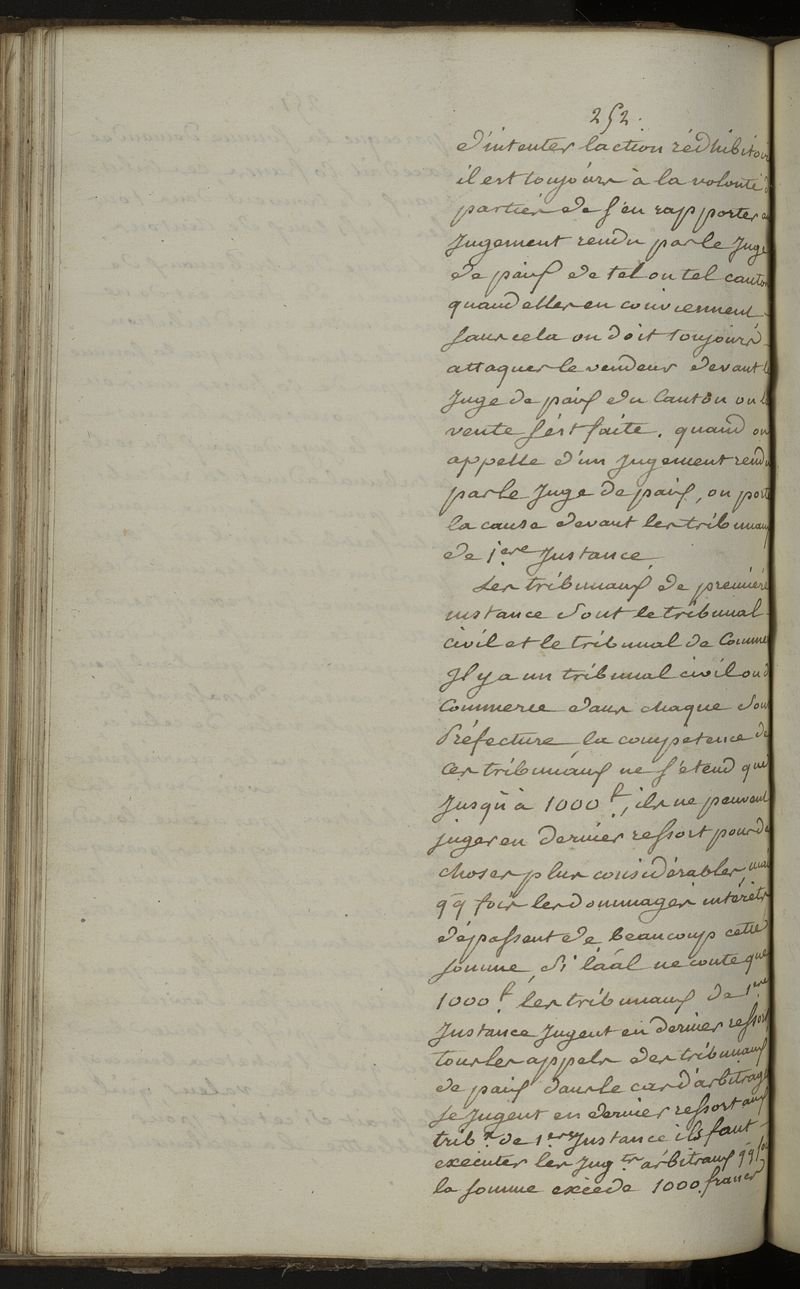 252.
d'intenter l'action rédhibitoir
il est toujours à la volonté d
partiés de s'en rapporter a
Jugement rendu par le Juge
de paix de tel ou tel canton
quand elles en conviennent
sans cela on doit toujours
attaquer le vendeur devant l
Juge de paix du Canton ou l
vente s'est faite. quand on
appelle d'un Jugement rendu
par le Juge de paix, on port
la cause devant les tribunaux
de 1ere Instance
Les tribunaux de premiere
instance sont le tribunal
civil et le tribunal de Comme
Il y a un tribunal civil ou d
Commerce dans chaque Sous
Préfecture la compétence de
Ces tribunaux ne s'étend que
Jusqu'à 1000 f, ils ne peuvent
juger en dernier ressort pour de
choses plus considérables, mai
qq fois les dommages intérêts
dépassent de beaucoup cette
somme, Si l'aâl ne coute que
1000 f les tribunaux de 1ere
Instance Jugent en dernier ressort
tous les appels des tribunaux
de paix dans le cas d'arbitrage
se Jugent en dernier ressort aux
trib.x de 1ere Instance ils font
executer les Jug.ts arbitraux qq fo
la somme excede 1000 francs